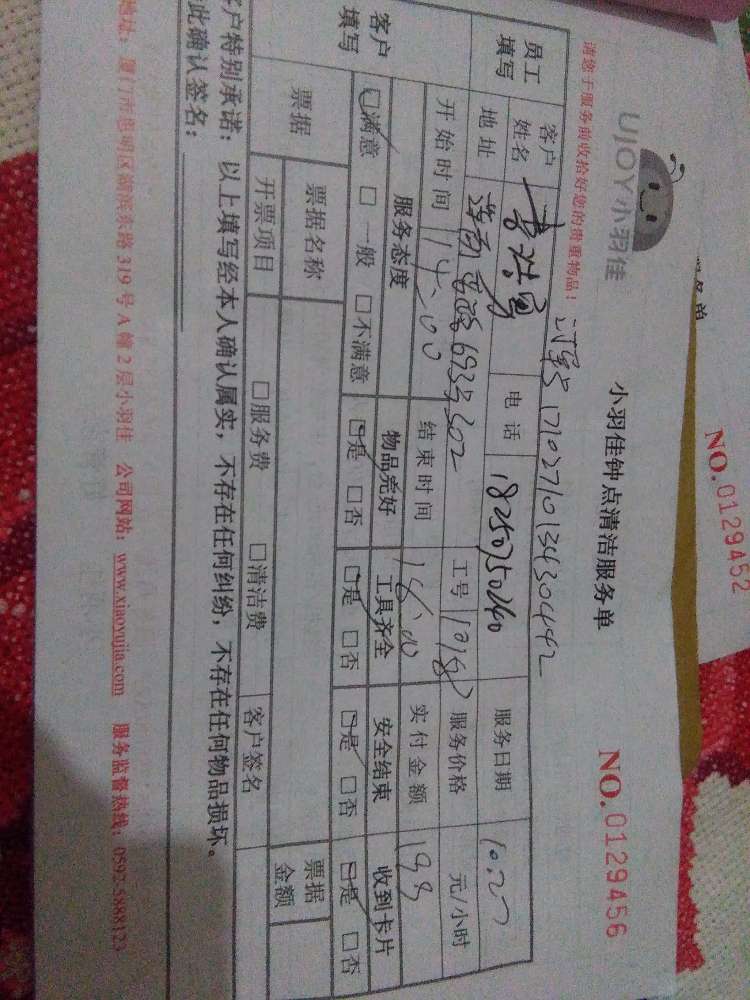 NO.0129452
UJOY小羽佳
小羽佳钟点清洁服务单
NO.0129456
请您于服务前收拾好您的贵重物品!
17102710134430442
员工填写
客户姓名
电话 18250750140
服务日期 10.27
地址
6935302
工号
服务价格 元/小时
开始时间 14:00
结束时间 18:00
实付金额 199
客户填写
服务态度 物品完好 工具齐全 安全结束 收到卡片
□满意 □一般 □不满意 □是 □否 □是 □否 □是 □否 □是 □否
票据 票据名称 票据金额
开票项目 □服务费 □清洁费 客户签名
客户特别承诺:以上填写经本人确认属实,不存在任何纠纷,不存在任何物品损坏。
此确认签名:
地址:厦门市思明区湖滨东路319号A幢2层小羽佳 公司网站:www.xiaoyujia.com 服务监督热线:0592-5888123